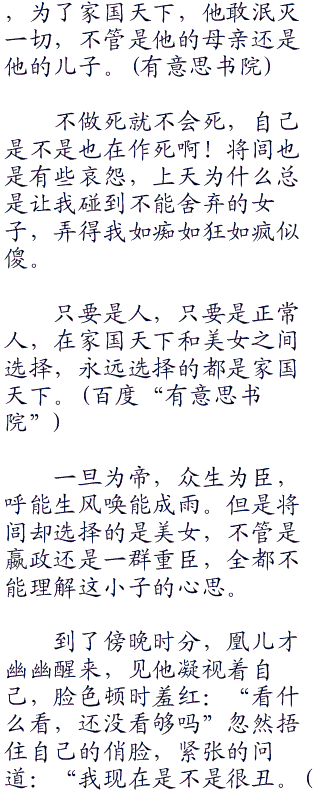 ，为了家国天下，他敢泯灭
一切，不管是他的母亲还是
他的儿子。(有意思书院)
不做死就不会死，自己
是不是也在作死啊！将闾也
是有些哀怨，上天为什么总
是让我碰到不能舍弃的女
子，弄得我如痴如狂如疯似
傻。
只要是人，只要是正常
人，在家国天下和美女之间
选择，永远选择的都是家国
天下。(百度“有意思书
院”)
一旦为帝，众生为臣，
呼能生风唤能成雨。但是将
闾却选择的是美女，不管是
嬴政还是一群重臣，全都不
能理解这小子的心思。
到了傍晚时分，凰儿才
幽幽醒来，见他凝视着自
己，脸色顿时羞红：“看什
么看，还没看够吗”忽然捂
住自己的俏脸，紧张的问
道：“我现在是不是很丑。(